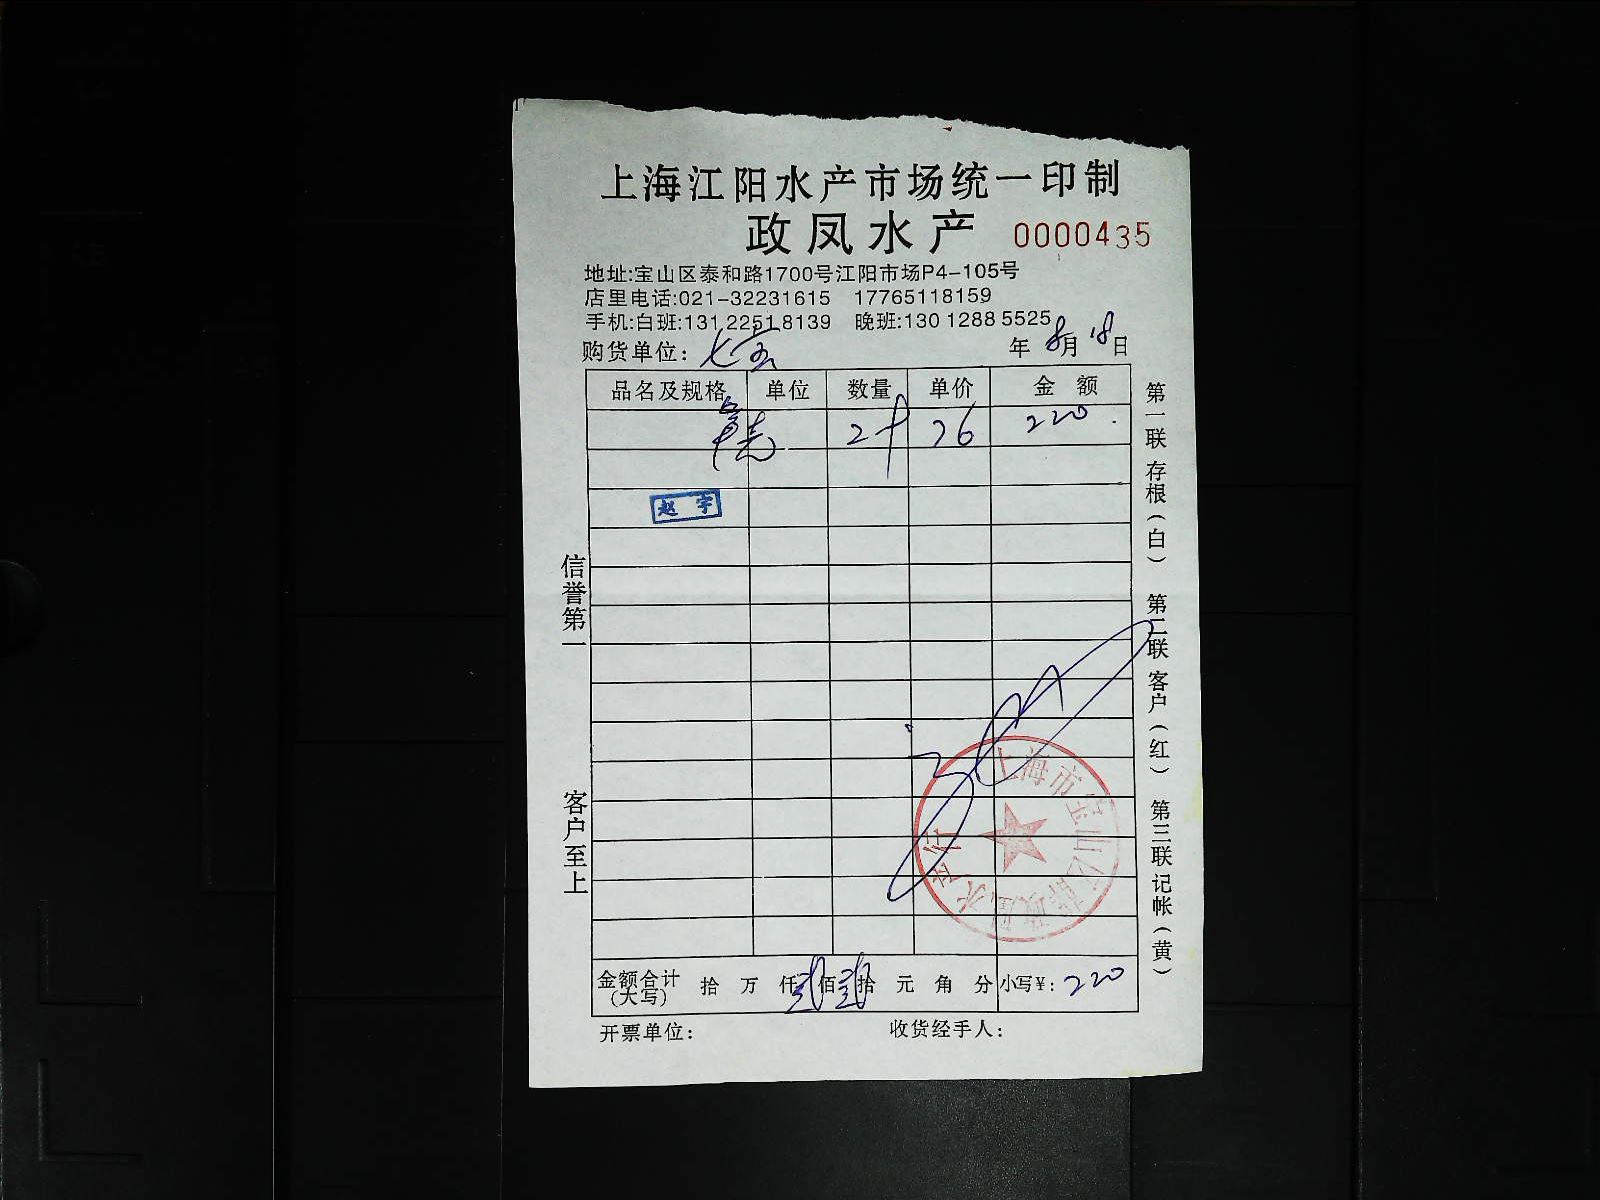 上海江阳水产市场统一印制
政凤水产 0000435
地址:宝山区泰和路1700号江阳市场P4-105号
店里电话:021-32231615 17765118159
手机:白班:131 2251 8139 晚班:130 1288 5525
购货单位: 七宝 年 8月 18日
品名及规格 单位 数量 单价 金额
220
赵宇
信誉第一
客户至上
第一联 存根(白) 第二联 客户(红) 第三联 记帐(黄)
上海市宝山区
政凤水产行
金额合计(大写) 拾 万 仟 贰佰 贰拾 元 角 分 小写¥: 220
开票单位: 收货经手人: